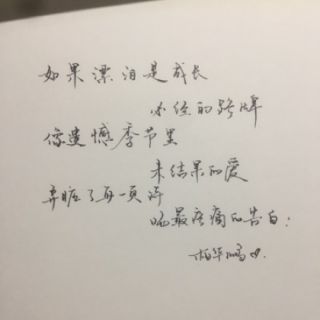 如果漂泊是成长
必经的路牌
像遗憾季节里
未结果的爱
弄脏了每一页诗
吻最疼痛的告白：